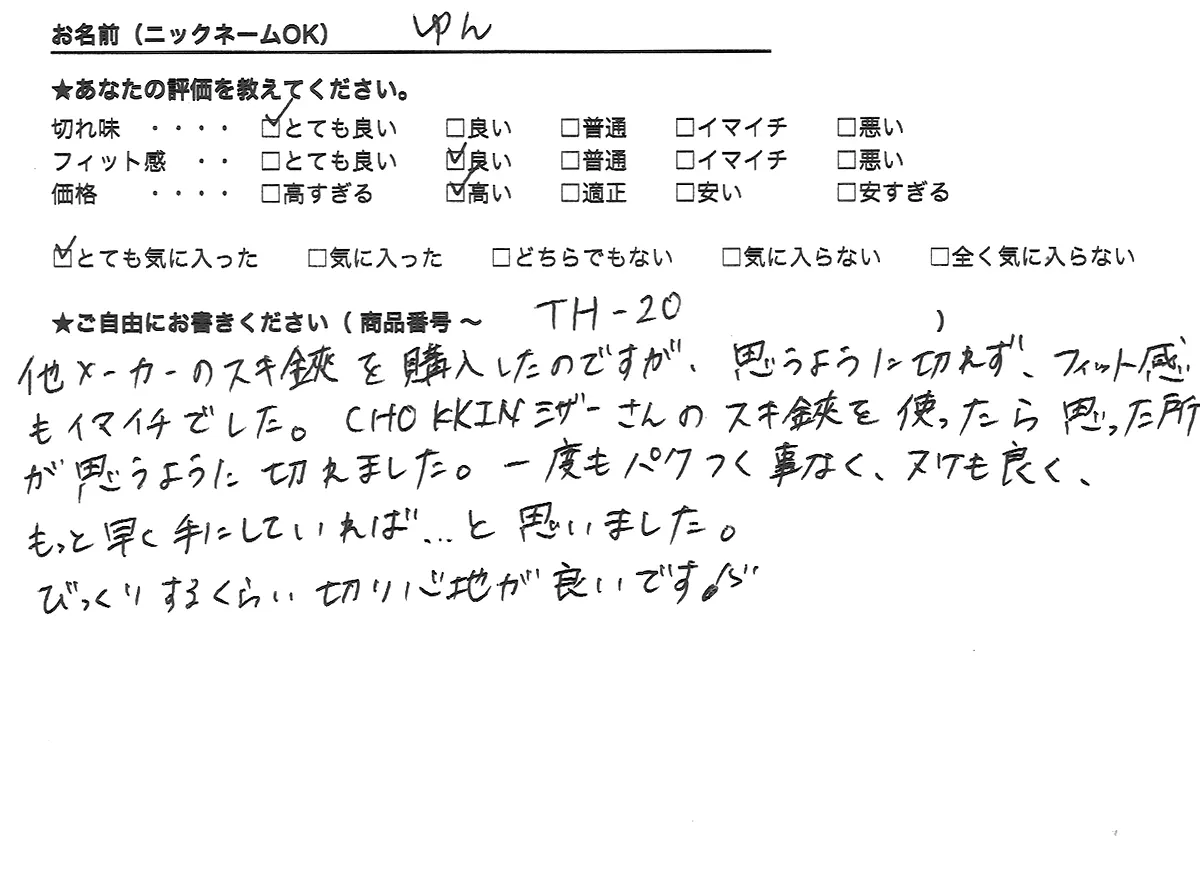 お名前（ニックネームOK） ゆん
★あなたの評価を教えてください。
切れ味 ・・・・ ☑とても良い □良い □普通 □イマイチ □悪い
フィット感 ・・ □とても良い ☑良い □普通 □イマイチ □悪い
価格 ・・・・ □高すぎる ☑高い □適正 □安い □安すぎる
☑とても気に入った □気に入った □どちらでもない □気に入らない □全く気に入らない
★ご自由にお書きください（ 商品番号 〜 TH-20 ）
他メーカーのスキ鋏を購入したのですが、思うように切れず、フィット感
もイマイチでした。CHOKKINミザーさんのスキ鋏を使ったら思った所
が思うように切れました。一度もパクつく事なく、ヌケも良く、
もっと早く手にしていれば…と思いました。
びっくりするくらい切り心地が良いです♪